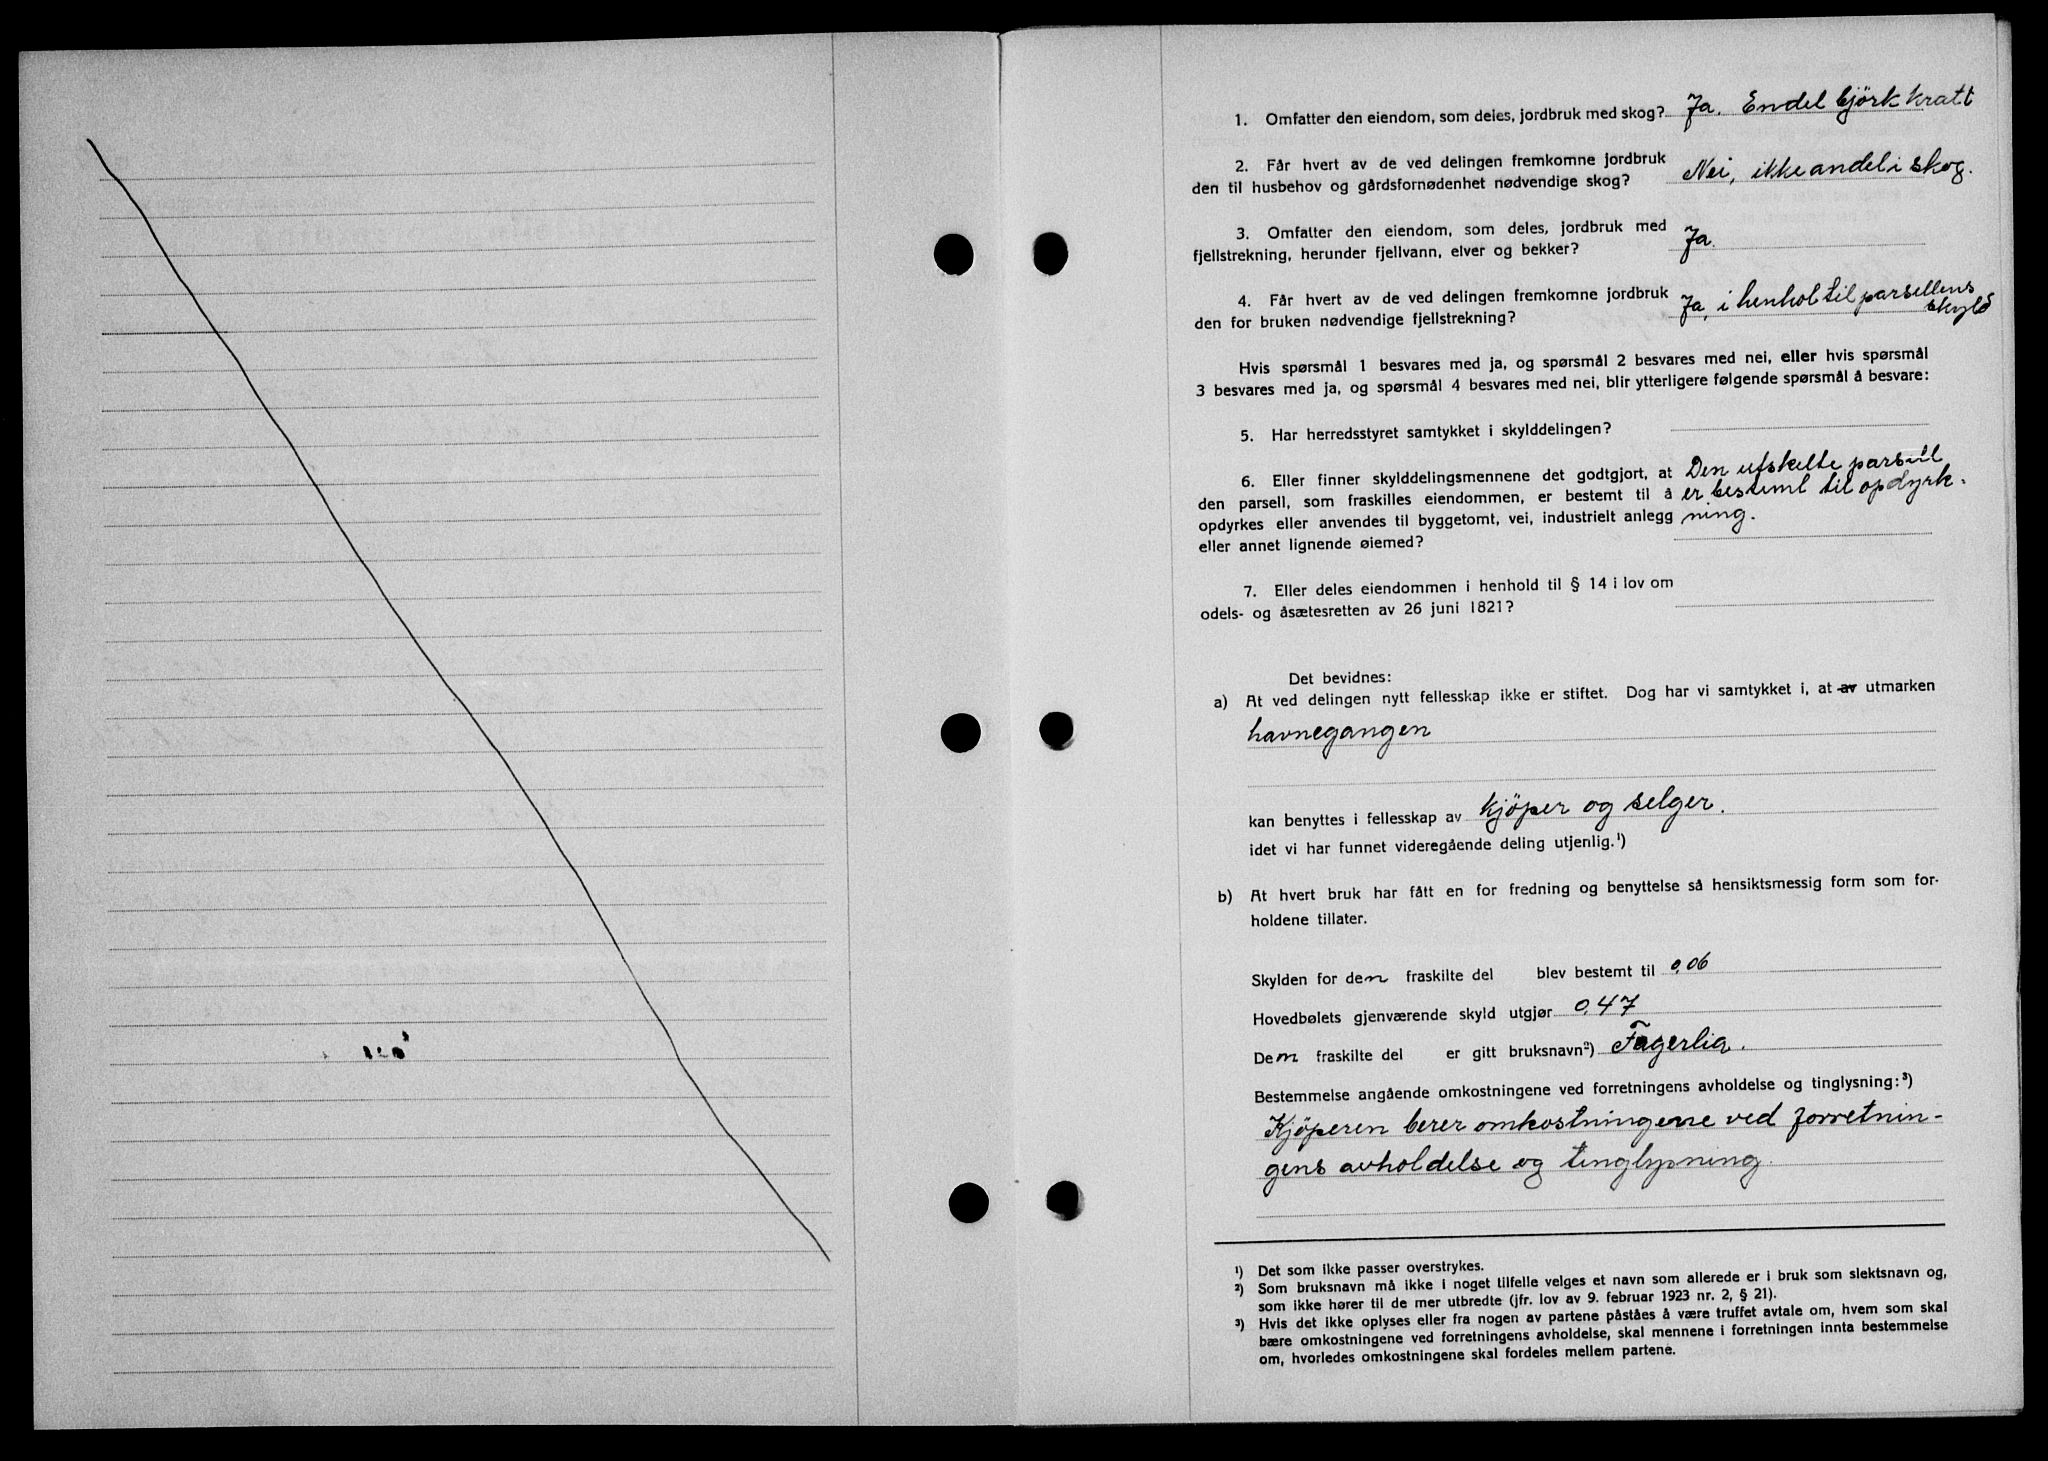 1. Omfatter den eiendom, som deles, jordbruk med skog? Ja. Endel björkkratt
2. Får hvert av de ved delingen fremkomne jordbruk
den til husbehov og gårdsfornødenhet nødvendige skog? Nei, ikke andel i skog.
3. Omfatter den eiendom, som deles, jordbruk med
fjellstrekning, herunder fjellvann, elver og bekker? Ja.
4. Får hvert av de ved delingen fremkomne jordbruk
den for bruken nødvendige fjellstrekning? Ja, i henhol til parsellens
skyld
Hvis spørsmål 1 besvares med ja, og spørsmål 2 besvares med nei, eller hvis spørsmål
3 besvares med ja, og spørsmål 4 besvares med nei, blir ytterligere følgende spørsmål å besvare:
5. Har herredsstyret samtykket i skylddelingen?
6. Eller finner skylddelingsmennene det godtgjort, at Den utskelte parsell
den parsell, som fraskilles eiendommen, er bestemt til å er bestemt til opdyrk-
opdyrkes eller anvendes til byggetomt, vei, industrielt anlegg ning.
eller annet lignende øiemed?
7. Eller deles eiendommen i henhold til § 14 i lov om
odels- og åsætesretten av 26 juni 1821?
Det bevidnes:
a) At ved delingen nytt fellesskap ikke er stiftet. Dog har vi samtykket i, at av utmarken
havnegangen
kan benyttes i fellesskap av kjöper og selger.
idet vi har funnet videregående deling utjenlig.¹)
b) At hvert bruk har fått en for fredning og benyttelse så hensiktsmessig form som for-
holdene tillater.
Skylden for den fraskilte del blev bestemt til 0,06
Hovedbølets gjenværende skyld utgjør 0,47
Dem fraskilte del er gitt bruksnavn²) Fagerlia.
Bestemmelse angående omkostningene ved forretningens avholdelse og tinglysning:³)
Kjöperen berer omkostningene ved forretnin-
gens avholdelse og tinglysning.
¹) Det som ikke passer overstrykes.
²) Som bruksnavn må ikke i noget tilfelle velges et navn som allerede er i bruk som slektsnavn og,
som ikke hører til de mer utbredte (jfr. lov av 9. februar 1923 nr. 2, § 21).
³) Hvis det ikke oplyses eller fra nogen av partene påståes å være truffet avtale om, hvem som skal
bære omkostningene ved forretningens avholdelse, skal mennene i forretningen innta bestemmelse
om, hvorledes omkostningene skal fordeles mellem partene.